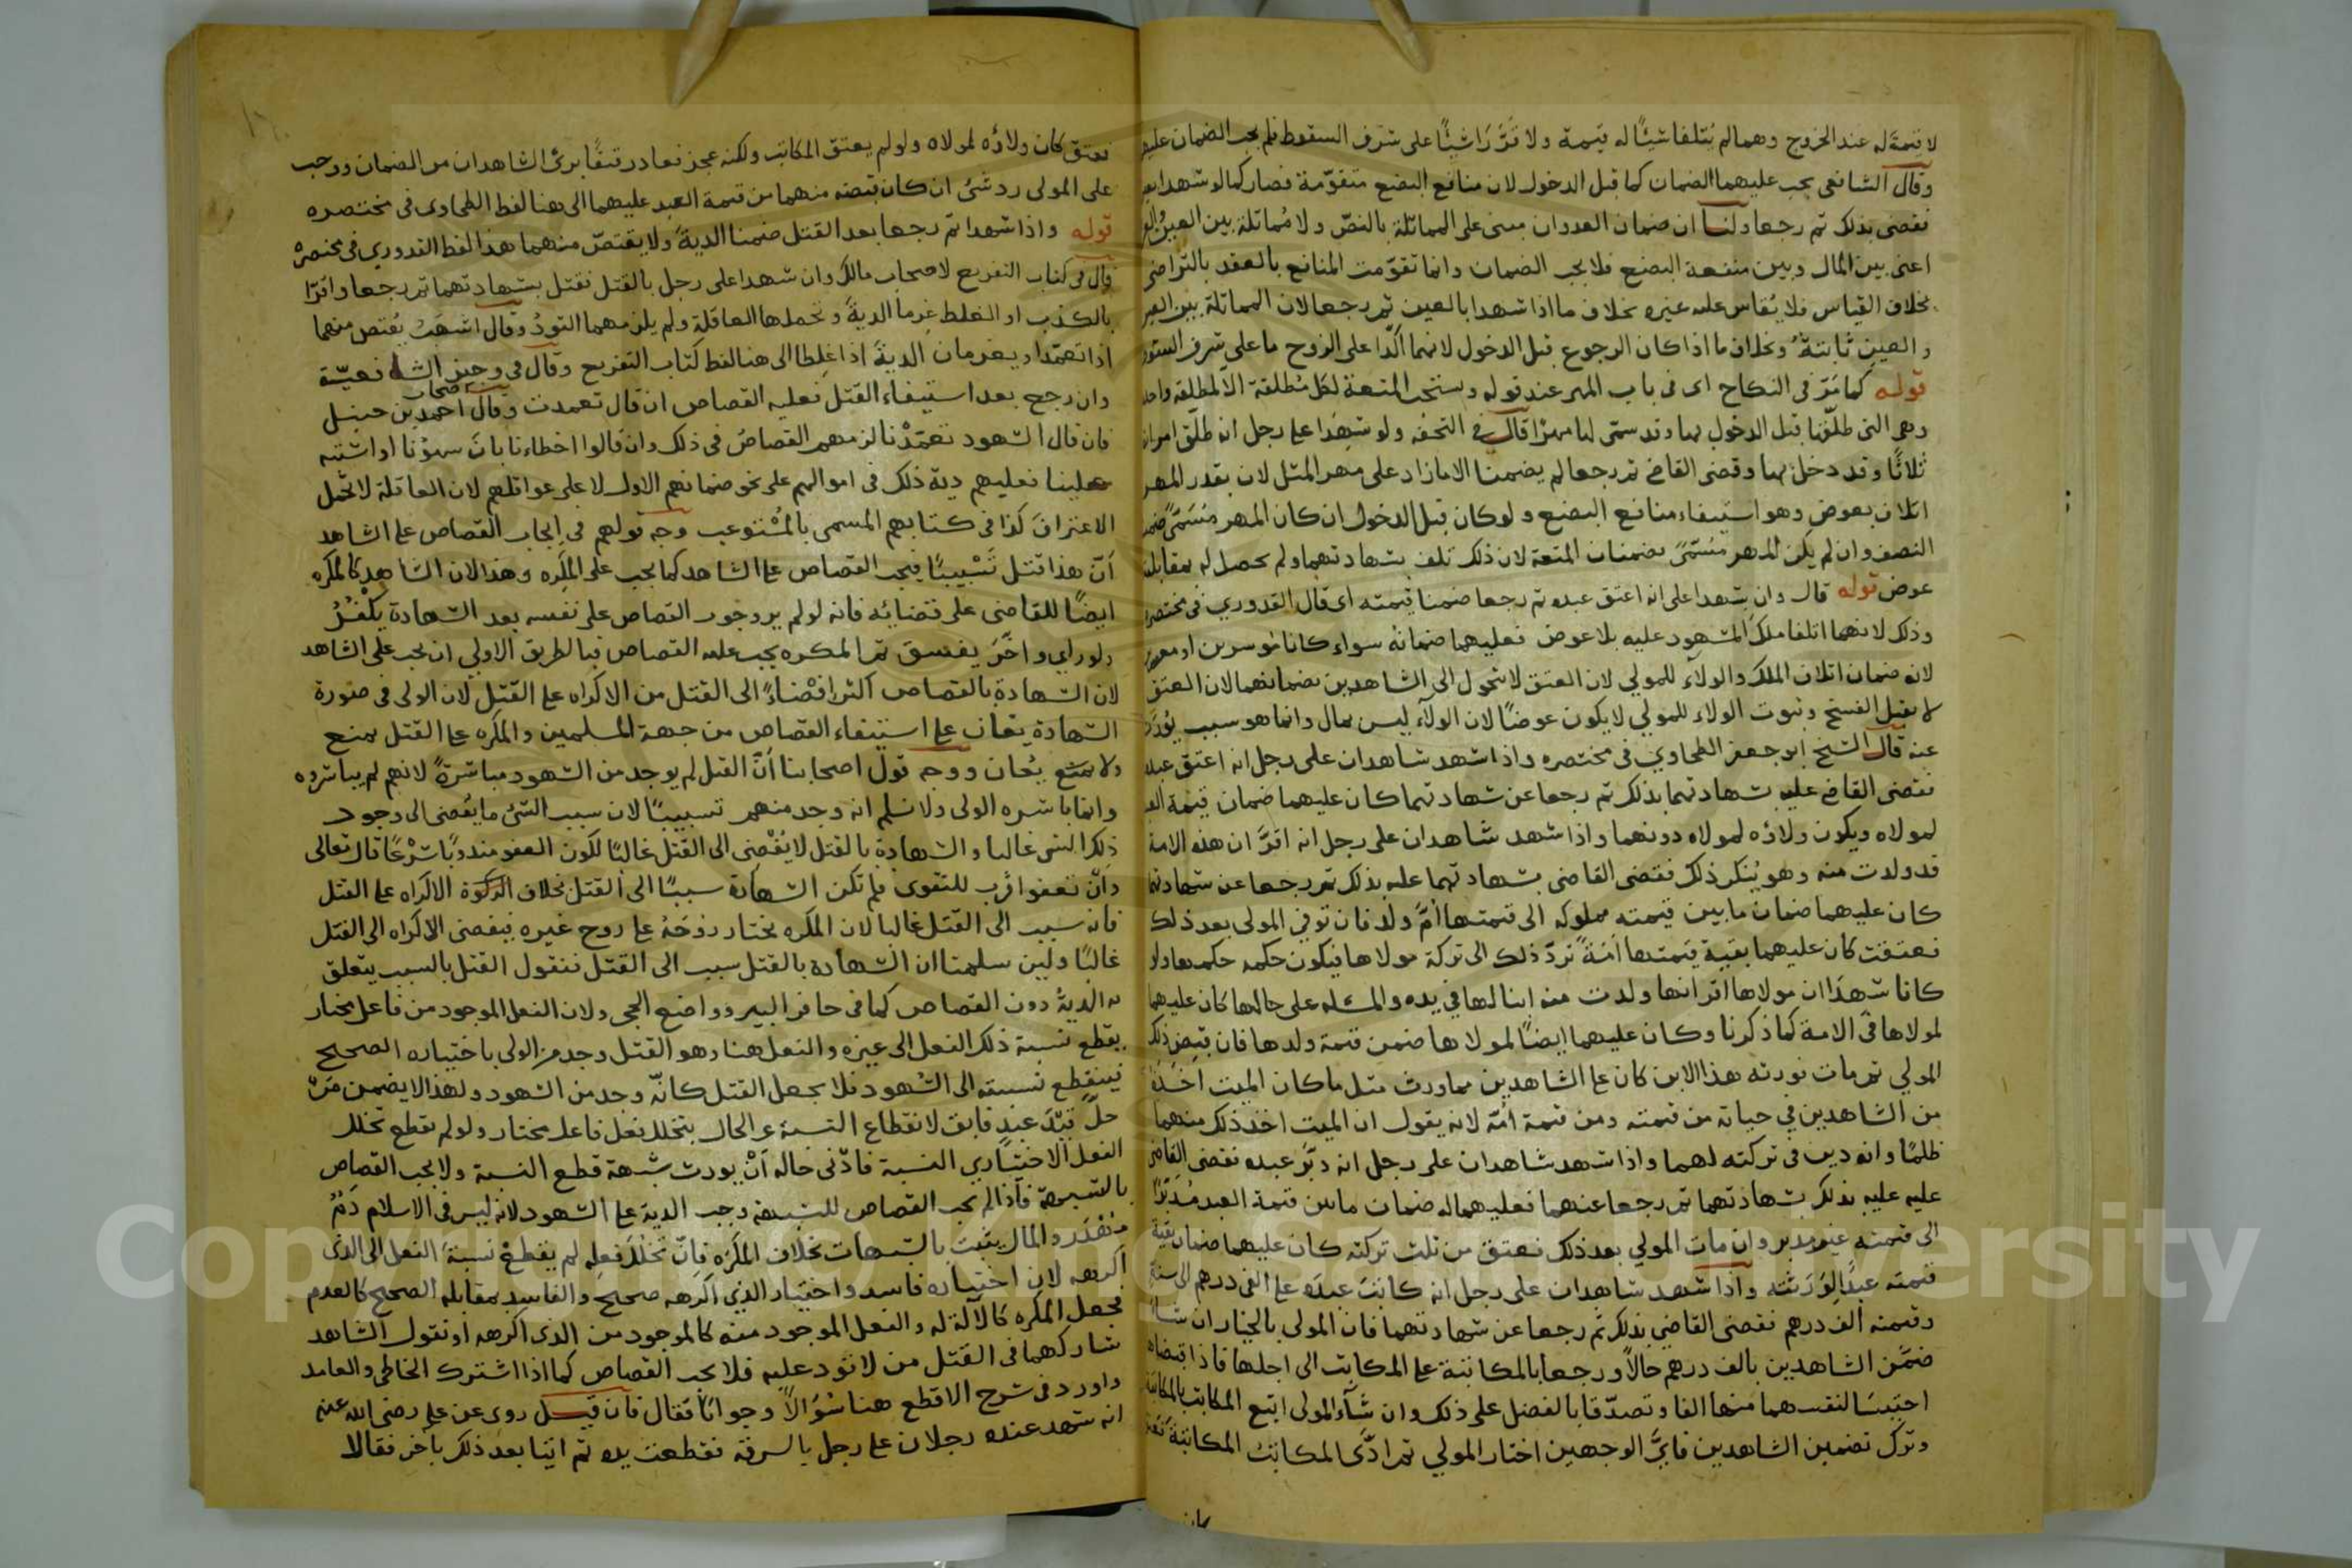 لا قيمة له عند الخروج وهما لم يتلفا شيئا له قيمة ولا قررا شيئا على شرف السقوط فلم يجب الضمان عليهما
وقال الشافعي يجب عليهما الضمان كما قبل الدخول لان منافع البضع متقومة فصار كما لو شهدا
فقضى بذلك ثم رجعا ولنا ان ضمان العدوان مبنى على المماثلة بالنص ولا مماثلة بين العين
اعنى بين المال وبين منفعة البضع فلا يجب الضمان وانما تقومت المنافع بالعقد بالتراضى
بخلاف القياس فلا يقاس عليه غيره بخلاف ما اذا شهدا بالعين ثم رجعا لان المماثلة بين العين
والعين ثابتة وبخلاف ما اذا كان الرجوع قبل الدخول لانهما اكدا على الزوج ما على شرف السقوط
قوله كما مر فى النكاح اى فى باب المهر عند قوله وتستحب المتعة لكل مطلقة الا لمطلقة واحدة
وهى التى طلقها قبل الدخول بها وقد سمى لها مهرا قال فى التحفه ولو شهدا على رجل انه طلق امراته
ثلاثا وقد دخل بها وقضى القاضى ثم رجعا لم يضمنا الا ما زاد على مهر المثل لان بقدر المهر
اتلاف بعوض وهو استيفاء منافع البضع ولو كان قبل الدخول ان كان المهر مسمى ضمنا
النصف وان لم يكن المهر مسمى يضمنان المتعة لان ذلك تلف بشهادتهما ولم يحصل له بمقابلته
عوض قوله قال وان شهدا على انه اعتق عبده ثم رجعا ضمنا قيمته اى قال القدوري فى مختصره
وذلك لانهما اتلفا ملك المشهود عليه بلا عوض فعليهما ضمانه سواء كانا موسرين او معسرين
لانه ضمان اتلاف الملك والولاء للمولى لان العتق لا يتحول الى الشاهدين بضمانهما لان العتق
لا يقبل الفسخ وثبوت الولاء للمولي لا يكون عوضا لان الولاء ليس بمال وانما هو سبب يورث
عنه قال الشيخ ابو جعفر الطحاوي فى مختصره واذا شهد شاهدان على رجل انه اعتق عبده
فقضى القاضى عليه بشهادتهما بذلك ثم رجعا عن شهادتهما كان عليهما ضمان قيمة العبد
لمولاه ويكون ولاؤه لمولاه دونهما واذا شهد شاهدان على رجل انه اقر ان هذه الامة
قد ولدت منه وهو ينكر ذلك فقضى القاضى بشهادتهما عليه بذلك ثم رجعا عن شهادتهما
كان عليهما ضمان ما بين قيمته مملوكه الى قيمتها ام ولد فان توفي المولى بعد ذلك
فعتقت كان عليهما بقية قيمتها امة ترد ذلك الى تركة مولاها فيكون حكمه حكمها ولو
كانا شهدا ان مولاها اقر انها ولدت منه ابنا لها في يده والمسئله على حالها كان عليهما
لمولاها فى الامة كما ذكرنا وكان عليهما ايضا لمولاها ضمن قيمة ولدها فان قبض ذلك
المولي ثم مات فورثه هذا الابن كان على الشاهدين مما ورث مثل ما كان الميت اخذه
من الشاهدين في حياته من قيمته ومن قيمة امه لانه يقول ان الميت اخذ ذلك منهما
ظلما وانه دين فى تركته لهما واذا شهد شاهدان على رجل انه دبر عبده فقضى القاضى
عليه عليه بذلك بشهادتهما ثم رجعا عنهما فعليهما له ضمان ما بين قيمة العبد مدبرا
الى قيمته غير مدبر وان مات المولي بعد ذلك فعتق من ثلث تركته كان عليهما ضمان بقية
قيمته عبدا لورثته واذا شهد شاهدان على رجل انه كاتب عبده على الفى درهم الى سنة
وقيمته الف درهم فقضى القاضي بذلك ثم رجعا عن شهادتهما فان المولى بالخيار ان شاء
ضمن الشاهدين بالف درهم حالا ورجعا بالمكاتبة على المكاتب الى اجلها فاذا قبضاها
احتبسا لنفسهما منها الفا وتصدقا بالفضل على ذلك وان شاء المولى اتبع المكاتب بالمكاتبة
وترك تضمين الشاهدين فاى الوجهين اختار المولي ثم ادى المكاتب المكاتبة
فعتق كان ولاؤه لمولاه ولو لم يعتق المكاتب ولكنه عجز فعاد رقيقا برئ الشاهدان من الضمان ووجب
على المولى رد شئ ان كان قبضه منهما من قيمة العبد عليهما الى هنا لفظ الطحاوى فى مختصره
قوله واذا شهدا ثم رجعا بعد القتل ضمنا الدية ولا يقتص منهما هذا لفظ القدوري فى مختصره
قال فى كتاب التفريع لاصحاب مالك وان شهدا على رجل بالقتل فقتل بشهادتهما ثم رجعا واقرا
بالكذب او الغلط غرما الدية وتحملها العاقلة ولم يلزمهما القود وقال اشهب يقتص منهما
اذا تعمدا ويغرمان الدية اذا غلطا الى هنا لفظ كتاب التفريع وقال فى وجيز الشافعية
وان رجع بعد استيفاء القتل فعليه القصاص ان قال تعمدت وقال اصحاب احمد بن حنبل
فان قال الشهود تعمدنا لزمهم القصاص فى ذلك وان قالوا اخطاءنا بان سهونا او اشتبه
علينا فعليهم دية ذلك فى اموالهم على نحو ضمانهم الاول لا على عواقلهم لان العاقلة لا تحمل
الاعتراف كذا فى كتابهم المسمى بالمستوعب وجه قولهم فى ايجاب القصاص على الشاهد
ان هذا قتل تسبيبا فيجب القصاص على الشاهد كما يجب على المكره وهذا لان الشاهد كالمكره
ايضا للقاضى على قضائه فانه لو لم ير وجوب القصاص على نفسه بعد الشهادة يكفر
ولو راى واخر يفسق ثم المكره يجب عليه القصاص فبالطريق الاولى ان يجب على الشاهد
لان الشهادة بالقصاص اكثر افضاء الى القتل من الاكراه على القتل لان الولى فى صورة
الشهادة يعان على استيفاء القصاص من جهة المسلمين والمكره على القتل يمنع
ولا يعان ووجه قول اصحابنا ان القتل لم يوجد من الشهود مباشرة لانهم لم يباشروه
وانما باشره الولى ولا نسلم انه وجد منهم تسبيبا لان سبب الشئ ما يفضى الى وجود
ذلك الشى غالبا والشهادة بالقتل لا يفضى الى القتل غالبا لكون العفو مندوبا شرعا قال تعالى
وان تعفوا اقرب للتقوى فلم تكن الشهادة سببا الى القتل بخلاف الاكراه على القتل
فانه سبب الى القتل غالبا لان المكره يختار روحه على روح غيره فيفضى الاكراه الى القتل
غالبا ولين سلمنا ان الشهادة بالقتل سبب الى القتل فنقول القتل بالسبب يتعلق
به الدية دون القصاص كما فى حافر البير وواضع الحجر ولان الفعل الموجود من فاعل مختار
يقطع نسبة ذلك الفعل الى غيره والفعل هنا وهو القتل وجد من الولى باختياره الصحيح
فينقطع نسبته الى الشهود فلا يجعل القتل كانه وجد من الشهود ولهذا لا يضمن من
حل قيد عبد فابق لانقطاع النسبة عن الحال بتخلل فعل فاعل مختار ولو لم يقطع تخلل
الفعل الاختياري النسبة فادنى حاله ان يورث شبهة قطع النسبة ولا يجب القصاص
بالشبهة فاذا لم يجب القصاص للشبهة وجب الدية على الشهود لانه ليس فى الاسلام دم
مهدر والمال يثبت بالشبهات بخلاف المكره فان تخلل فعله لم يقطع نسبة الفعل الى الذى
اكرهه لان اختياره فاسد واختيار الذى اكرهه صحيح والفاسد بمقابلة الصحيح كالعدم
فجعل المكره كالآلة له والفعل الموجود منه كالموجود من الذى اكرهه او نقول الشاهد
شاركهما فى القتل من لا قود عليه فلا يجب القصاص كما اذا اشترك الخاطى والعامد
واورد فى شرح الاقطع هنا سؤالا وجوابا فقال فان قيل روى عن على رضى الله عنه
انه شهد عنده رجلان على رجل بالسرقة فقطعت يده ثم اتيا بعد ذلك بآخر فقالا
Copyright © King Saud University